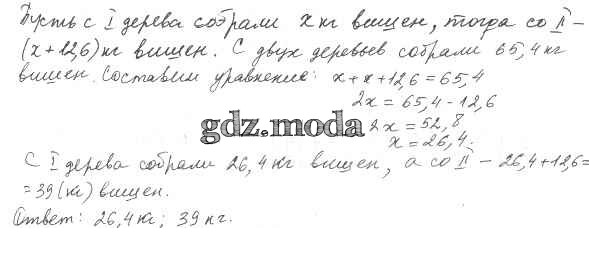 Пусть с I дерева собрали x кг вишен, тогда со II –
(x+12,6) кг вишен. С двух деревьев собрали 65,4 кг
вишен. Составим уравнение: x+x+12,6=65,4
2x = 65,4-12,6
gdz.moda 2x = 52,8
x = 26,4.
С I дерева собрали 26,4 кг вишен, а со II – 26,4+12,6=
=39 (кг) вишен.
Ответ: 26,4 кг; 39 кг.